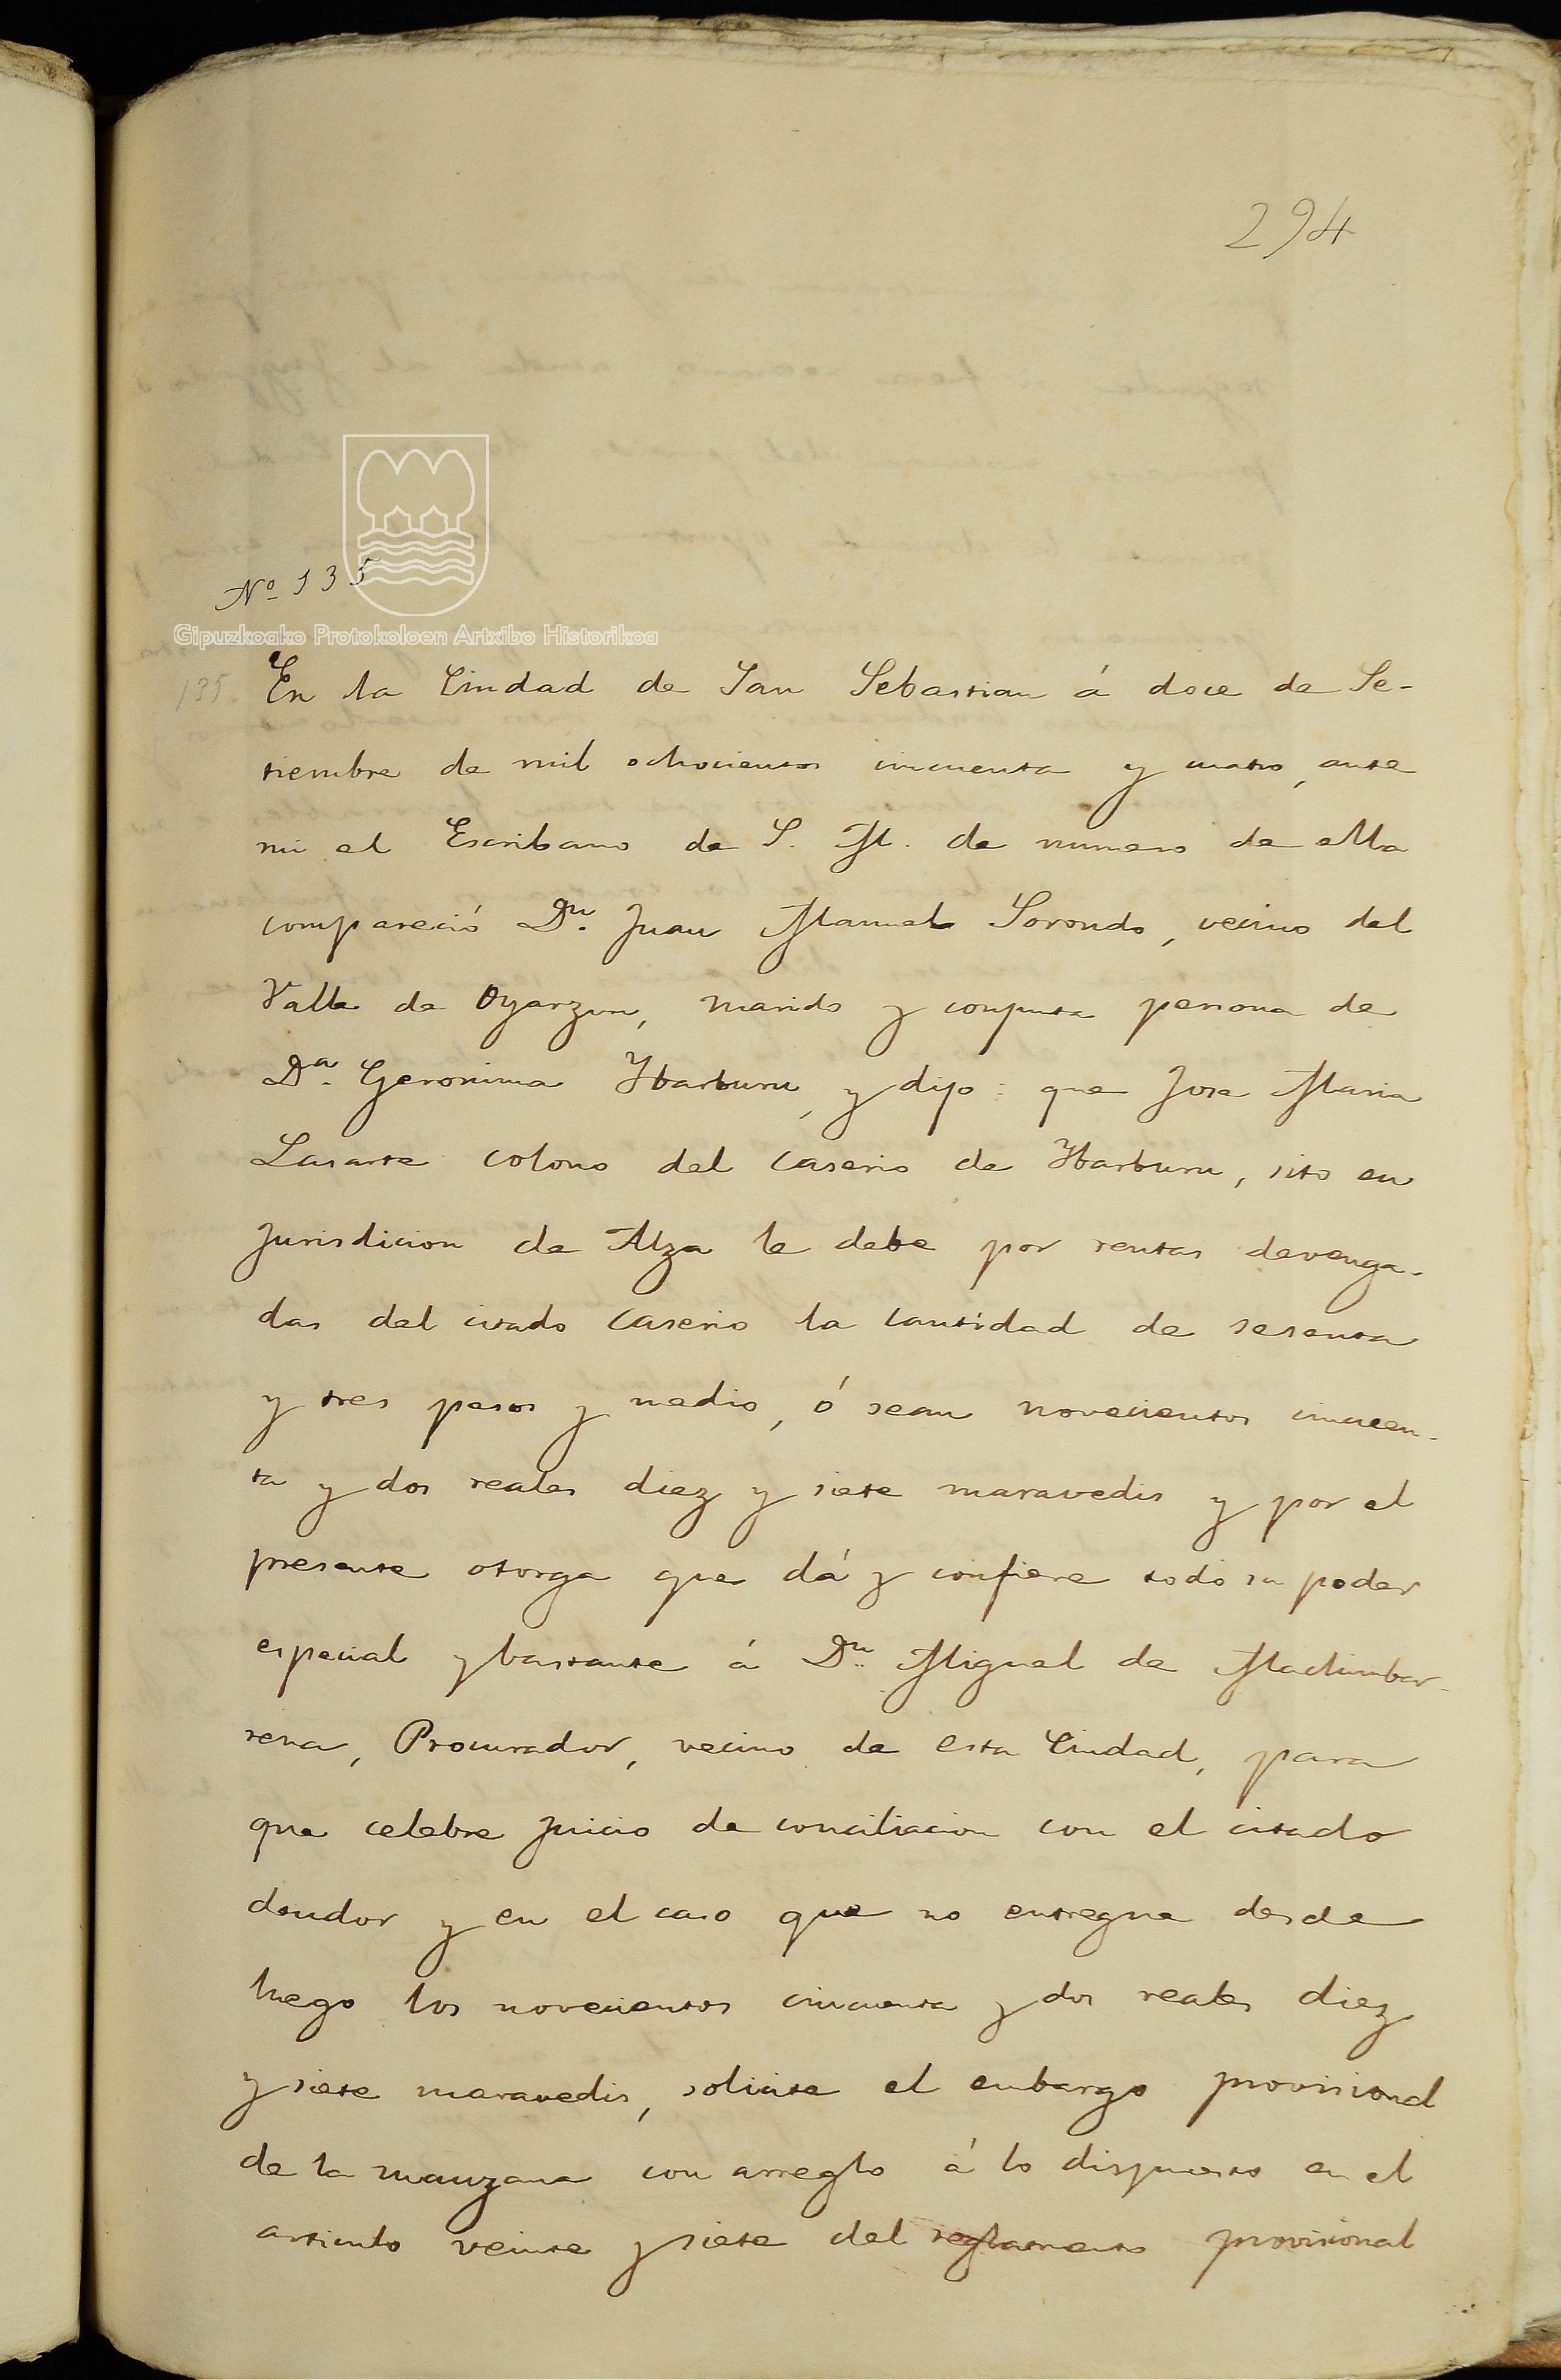 294
Nº 135
Gipuzkoako Protokoloen Artxibo Historikoa
135.
En la Ciudad de San Sebastian á doce de Se-
tiembre de mil ochocientos cincuenta y cuatro, ante
mi el Escribano de S. M. de numero de ella
compareció Dn. Juan Manuel Sorondo, vecino del
Valle de Oyarzun, marido y conjunta persona de
Da. Geronima Ybarburu, y dijo: que Jose Maria
Lasarte colono del caserio de Ybarburu, sito en
jurisdicion de Alza le debe por rentas devenga-
das del citado caserio la cantidad de sesenta
y tres pesos y medio, ó sean novecientos cincuen-
ta y dos reales diez y siete maravedis y por el
presente otorga que dá y confiere todo su poder
especial y bastante á Dn. Miguel de Machimbar-
rena, Procurador, vecino de esta Ciudad, para
que celebre juicio de conciliacion con el citado
deudor y en el caso que no entregue desde
luego los novecientos cincuenta y dos reales diez
y siete maravedis, solicite el embargo provisional
de la manzana con arreglo á lo dispuesto en el
articulo veinte y siete del reglamento provisional